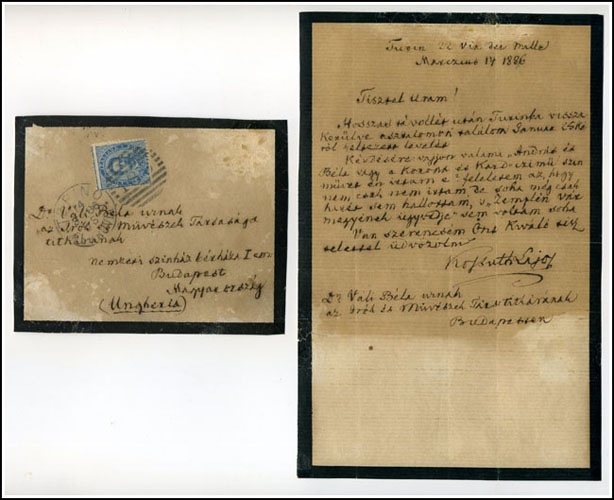 Dr Váli Béla urnak
az Irók Művészek Társasága
titkárának
nemzeti szinház bérháza I em
Budapest
Magyarország
(Ungheria)
Turin 22 Via dei Mille
Marczius 14 1886
Tisztelt Uram!
Hosszas távollét után Turinba vissza
kerülve asztalomon találom Januar
ról keltezett levelét
Kérdésére vajjon valami "András és
Béla vagy a Korona és Kard" czimű szin
művet én irtam e? feleletem az, hogy
nem csak nem irtam de soha még csak
hirét sem hallottam, "Zemplén vár
megyének ügyvédje" sem voltam soha
Van szerencsém Önt Kiváló tisz
telettel üdvözölni
Kossuth Lajos
Dr Váli Béla urnak
az Irók és Művészek Társ titkárának
Budapesten